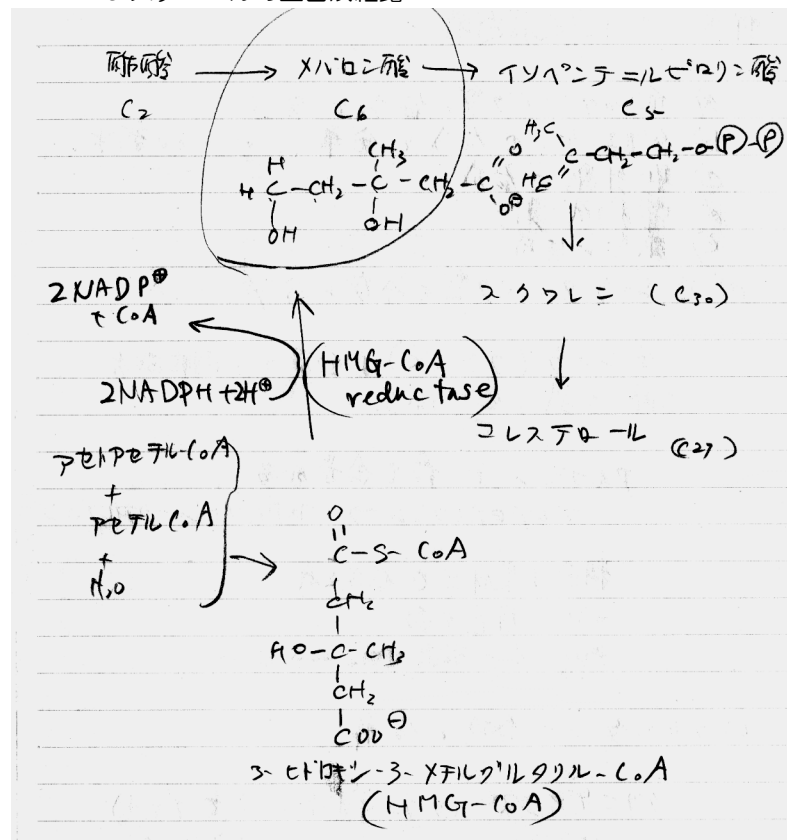 酢酸 → メバロン酸 → イソペンテニルピロリン酸
C2 C6 C5
H H C-CH2-C-CH2-C
OH CH3 OH O O⊖
H3C H2C C-CH2-CH2-O-Ⓟ-Ⓟ
スクワレン (C30)
コレステロール (C27)
2NADP⊕
+ CoA
2NADPH+2H⊕
(HMG-CoA
reductase)
アセトアセチル-CoA
+
アセチルCoA
+
H2O
O
C-S-CoA
CH2
HO-C-CH3
CH2
COO⊖
3-ヒドロキシ-3-メチルグルタリル-CoA
(HMG-CoA)